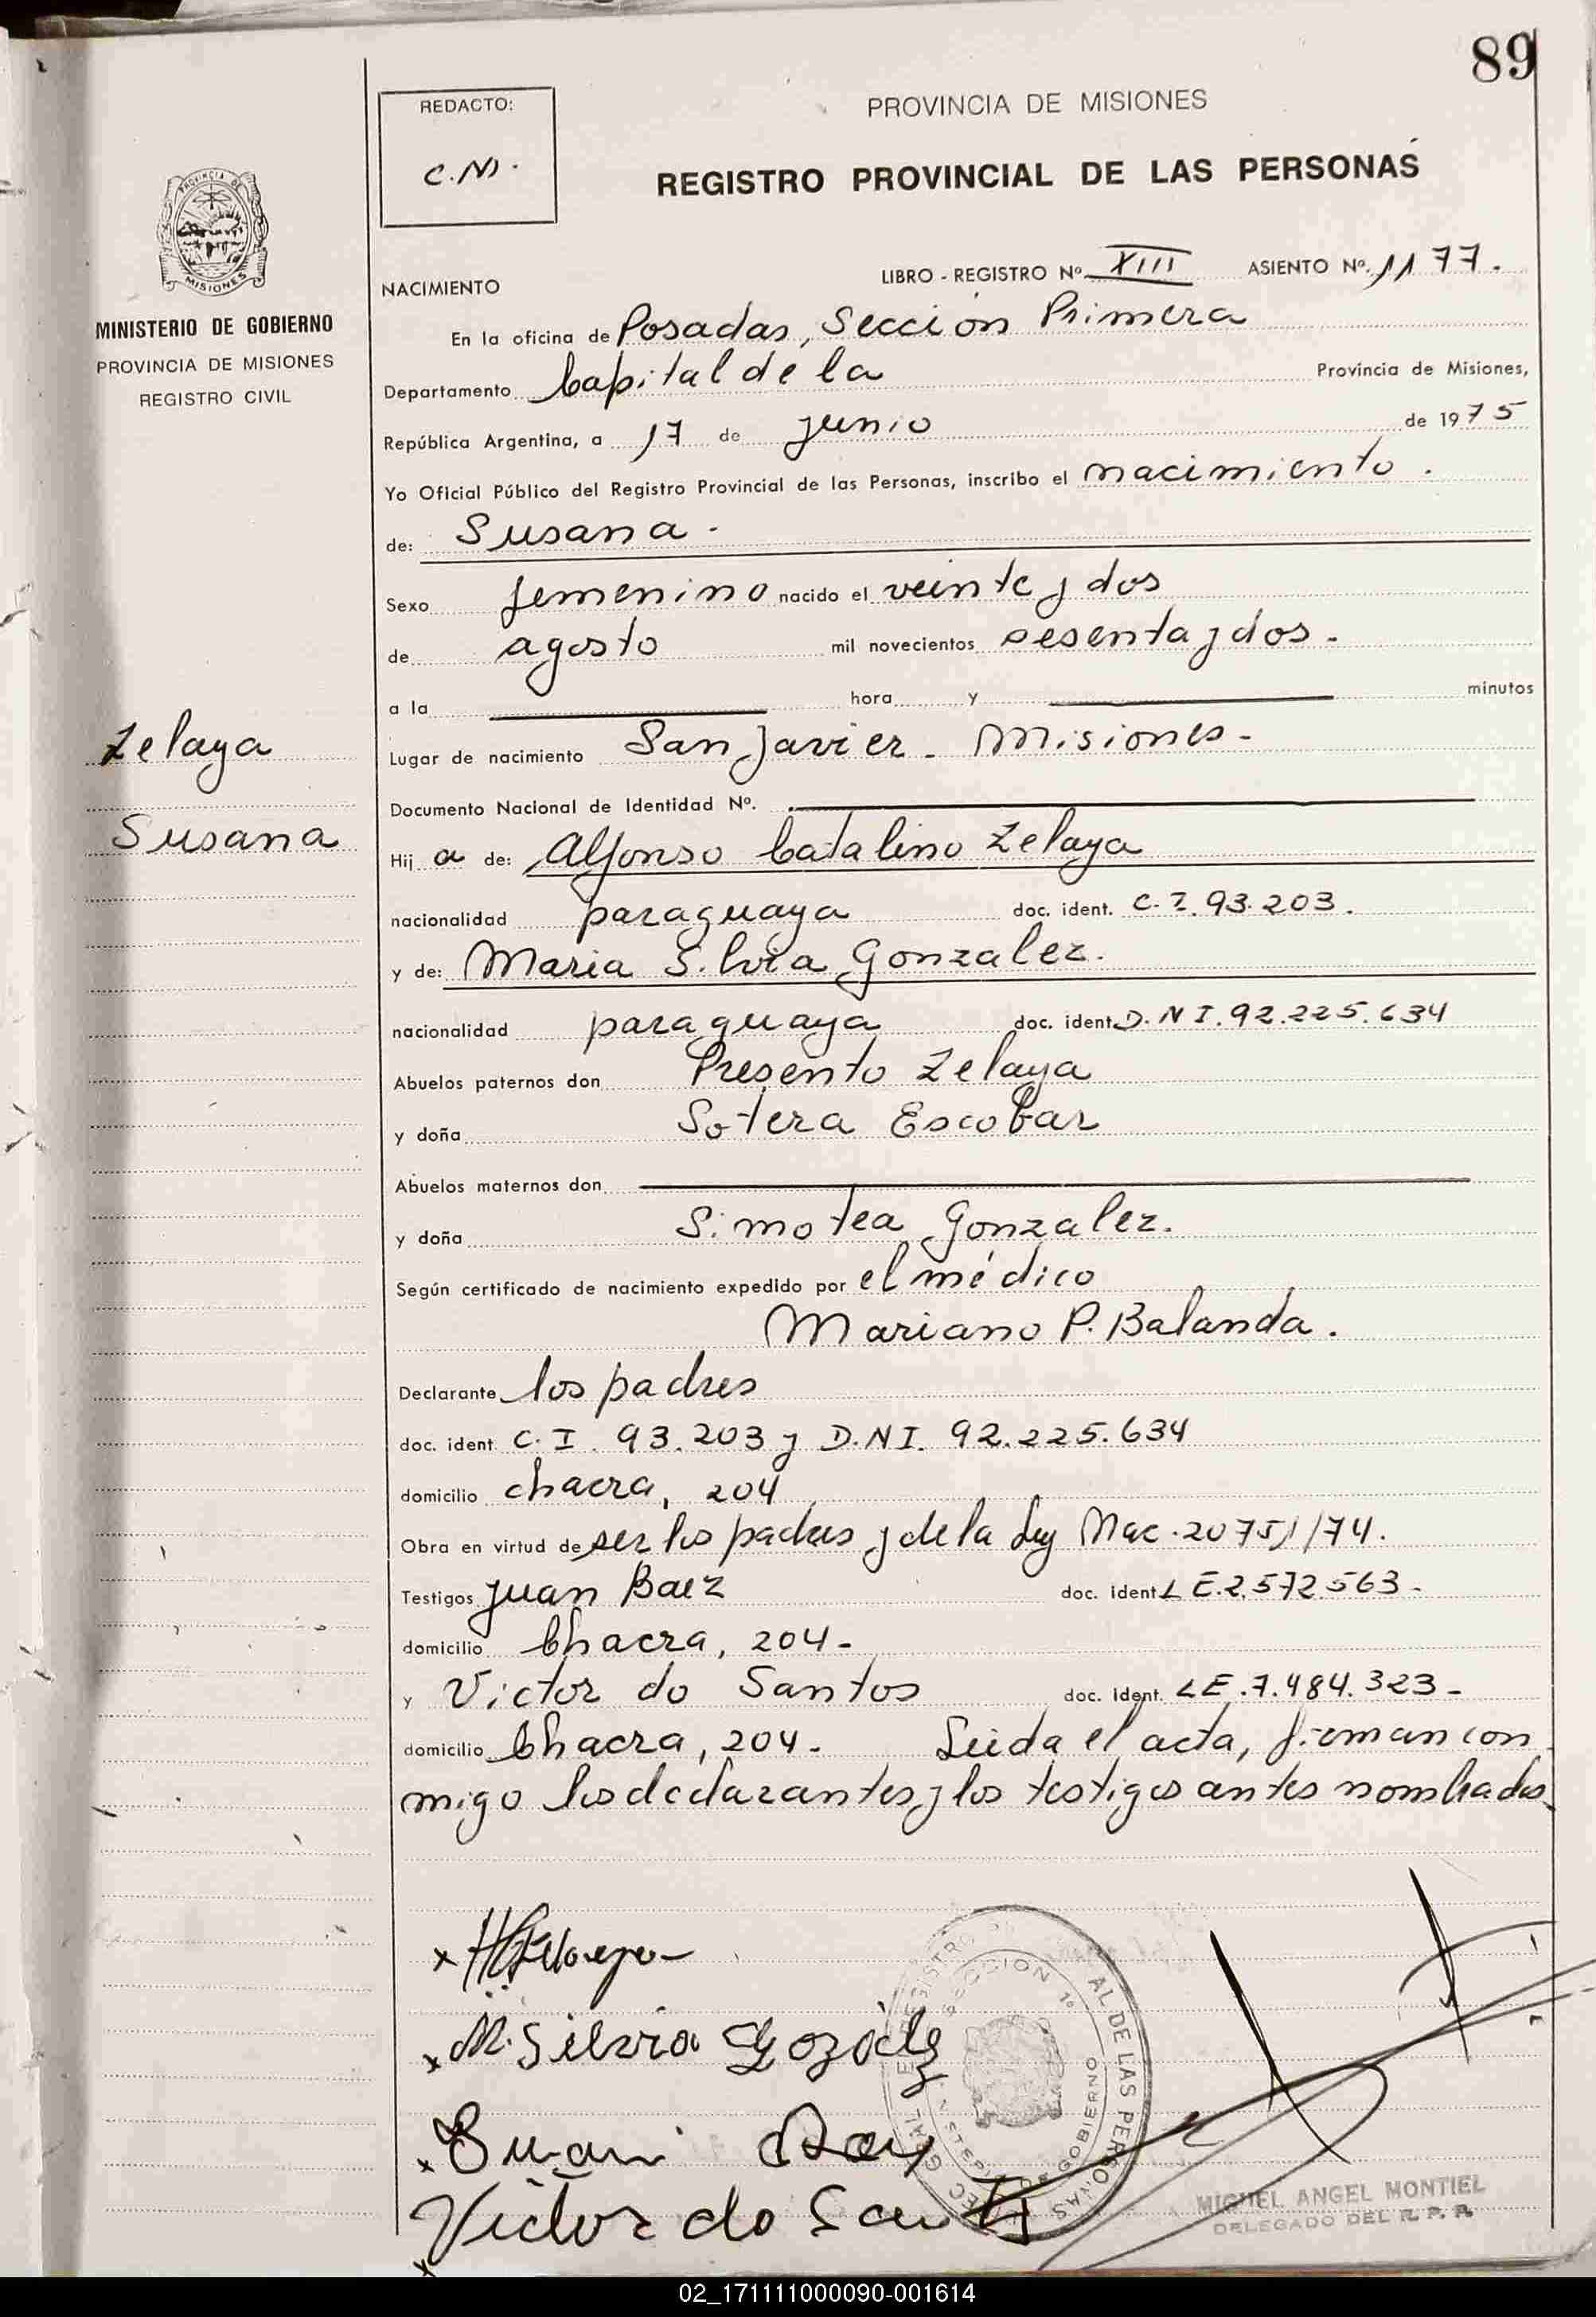 89
REDACTO:
C.N.
PROVINCIA DE MISIONES
REGISTRO PROVINCIAL DE LAS PERSONAS
PROVINCIA DE
MISIONES
MINISTERIO DE GOBIERNO
PROVINCIA DE MISIONES
REGISTRO CIVIL
NACIMIENTO
LIBRO - REGISTRO Nº XIII ASIENTO Nº 1177.
En la oficina de Posadas, Sección Primera
Departamento Capital de la Provincia de Misiones,
República Argentina, a 17 de junio de 1975
Yo Oficial Público del Registro Provincial de las Personas, inscribo el nacimiento.
de: Susana.
Sexo femenino nacido el veinte y dos
de agosto mil novecientos sesenta y dos.
a la hora y minutos
Lugar de nacimiento San Javier - Misiones-
Documento Nacional de Identidad Nº.
Zelaya
Susana
Hij a de: Alfonso Catalino Zelaya
nacionalidad paraguaya doc. ident. C.I. 93.203.
y de: Maria Silvia Gonzalez.
nacionalidad paraguaya doc. ident. D.N I. 92.225.634
Abuelos paternos don Presento Zelaya
y doña Sotera Escobar
Abuelos maternos don
y doña Simotea Gonzalez.
Según certificado de nacimiento expedido por el médico
Mariano P. Balanda.
Declarante los padres
doc. ident C.I. 93.203 y D.N I. 92.225.634
domicilio chacra, 204
Obra en virtud de ser los padres y de la Ley Nac. 20751/74.
Testigos Juan Baez doc. ident L E.2.572.563-
domicilio Chacra, 204-
y Victor do Santos doc. ident. LE.7.484.323-
domicilio Chacra, 204. Leida el acta, firman con
migo los declarantes y los testigos antes nombrados
M. Silvia Gozalez
Juan
Victor do Santos
SECCION 1º
AL DE LAS PERSONAS
GOBIERNO
MIGUEL ANGEL MONTIEL
DELEGADO DEL R. P. P.
02_171111000090-001614